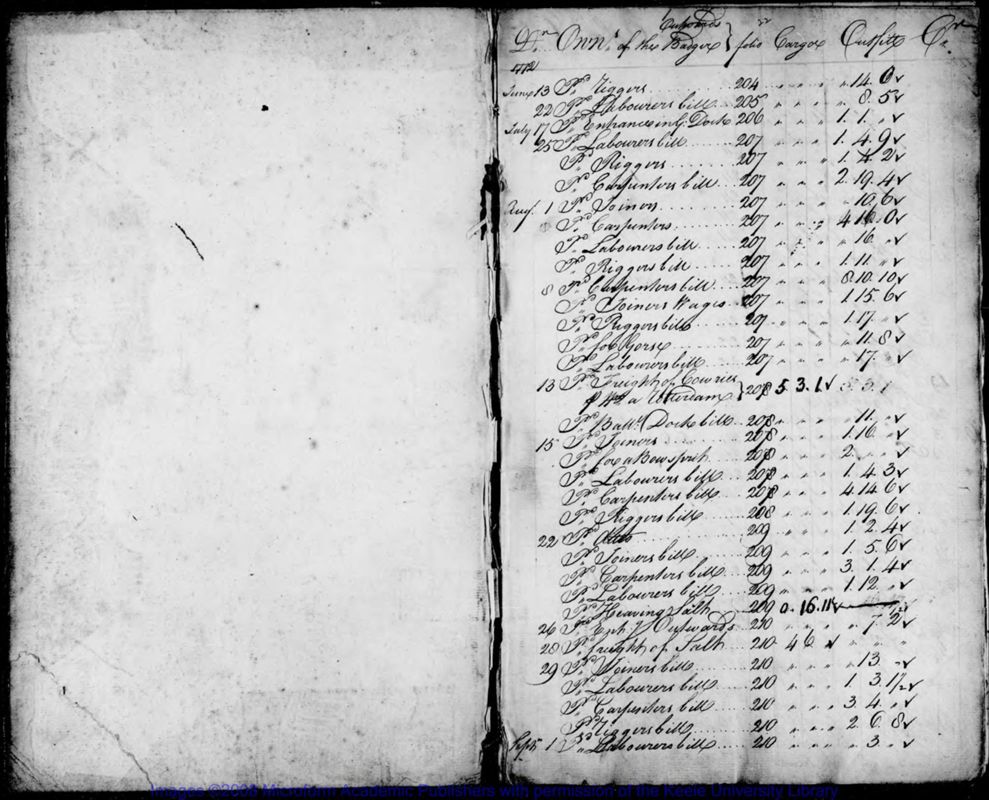 Outwards
Dr. Ownrs. of the Badger } folio Cargoe Outfitt Cr.
1772
June 13 Pd. Riggers ...... 204 " " " " 14. 0 ✓
22 Pd. Labourers bill ..... 205 " " " " 8. 5 ✓
July 17 Pd. Entrance in G. Dock 206 " " " 1. 1. " ✓
25 Pd. Labourers bill ...... 207 " " " 1. 4. 9 ✓
Pd. Riggers ...... 207 " " " 1. 4. 2 ✓
Pd. Carpenters bill .... 207 " " " 2. 19. 4 ✓
Aug. 1 Pd. Joiners ...... 207 " " " " 10. 6 ✓
Pd. Carpenters ...... 207 " " " 4 0 ✓
Pd. Labourers bill ..... 207 " " " " 16. " ✓
Pd. Riggers bill ...... 207 " " " 1. 11. " ✓
8 Pd. Carpenters bill ..... 207 " " " 8 10. 10 ✓
Pd. Joiners Wages ... 207 " " " 1. 15. 6 ✓
Pd. Riggers bill ...... 207 " " " 1. 17. " ✓
Pd. for Horse ...... 207 " " " " 11. 8 ✓
Pd. Labourers bill ..... 207 " " " " 17. " ✓
13 Pd. Freight of Cowries
a Rotterdam } 208 5. 3. 1 ✓
Pd. Ballt. Dock bill ... 208 " " " " 11. " ✓
15 Pd. Joiners ...... 208 " " " 1. 16. " ✓
Pd. for a Bowsprit ..... 208 " " " 2. " " ✓
Pd. Labourers bill ..... 208 " " " 1. 4. 3 ✓
Pd. Carpenters bill .... 208 " " " 4. 14. 6 ✓
Pd. Riggers bill ...... 208 " " " 1. 19. 6 ✓
22 Pd. ...... 209 " " " 1. 2. 4 ✓
Pd. Joiners bill ...... 209 " " " 1. 5. 6 ✓
Pd. Carpenters bill ..... 209 " " " 3. 1. 4 ✓
Pd. Labourers bill ..... 209 " " " 1. 12. " ✓
Pd. Heaving Salt ..... 209 0. 16. 11 ✓
26 Pd. Outwards .. 210 " " " " 7. 2 ✓
28 Pd. freight of Salt .... 210 4 6 " ✓ " " "
29 Pd. Joiners bill ...... 210 " " " " 13. " ✓
Pd. Labourers bill .... 210 " " " 1. 3. 1½ ✓
Pd. Carpenters bill .... 210 " " " 3. 4. " ✓
Pd. Riggers bill ...... 210 " " " 2. 6. 8 ✓
Septr. 1 Pd. Labourers bill .... 210 " " " " 3. " ✓
Images ©2008 Microform Academic Publishers with permission of the Keele University Library